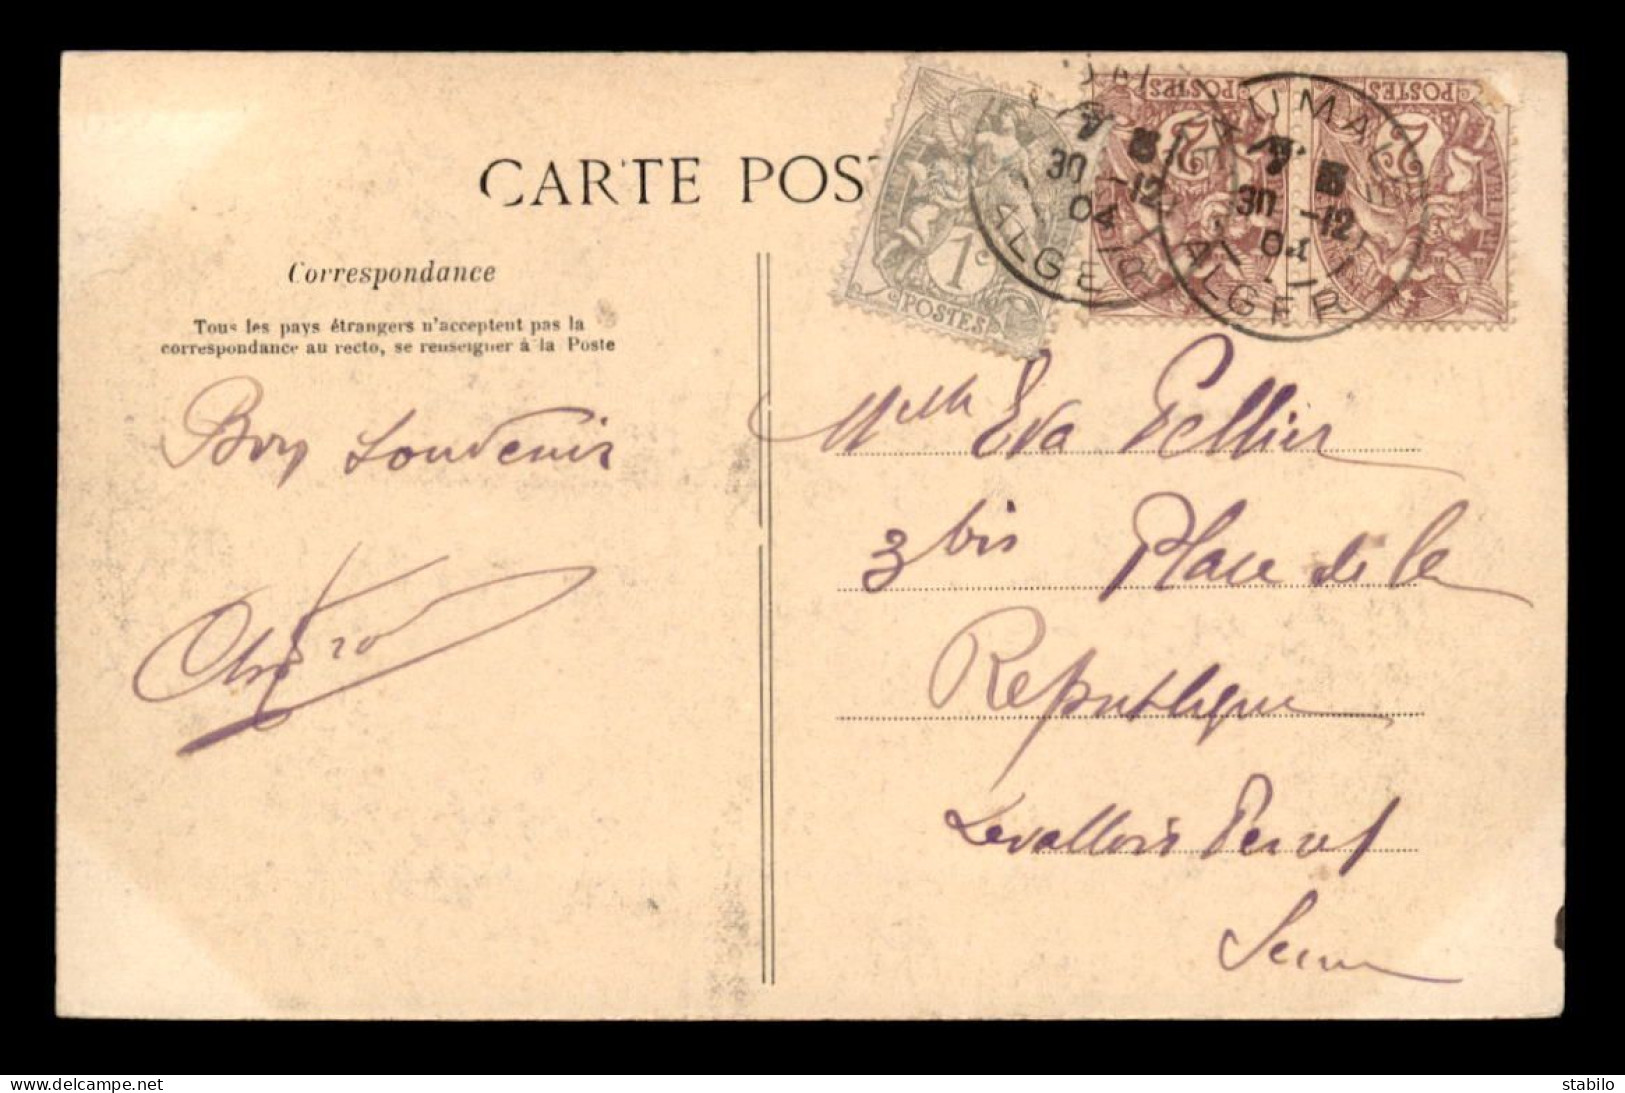 CARTE POS
Correspondance
Tous les pays étrangers n'acceptent pas la
correspondance au recto, se renseigner à la Poste
Bon Souvenir
1c
POSTES
POSTES
2
POSTES
2
30 -12
04
ALGER
AUMALE
30 -12
04
ALGER
Melle Eva Pellier
3 bis Place de la
République
Levallois Perret
Seine
delcampe.net
stabilo